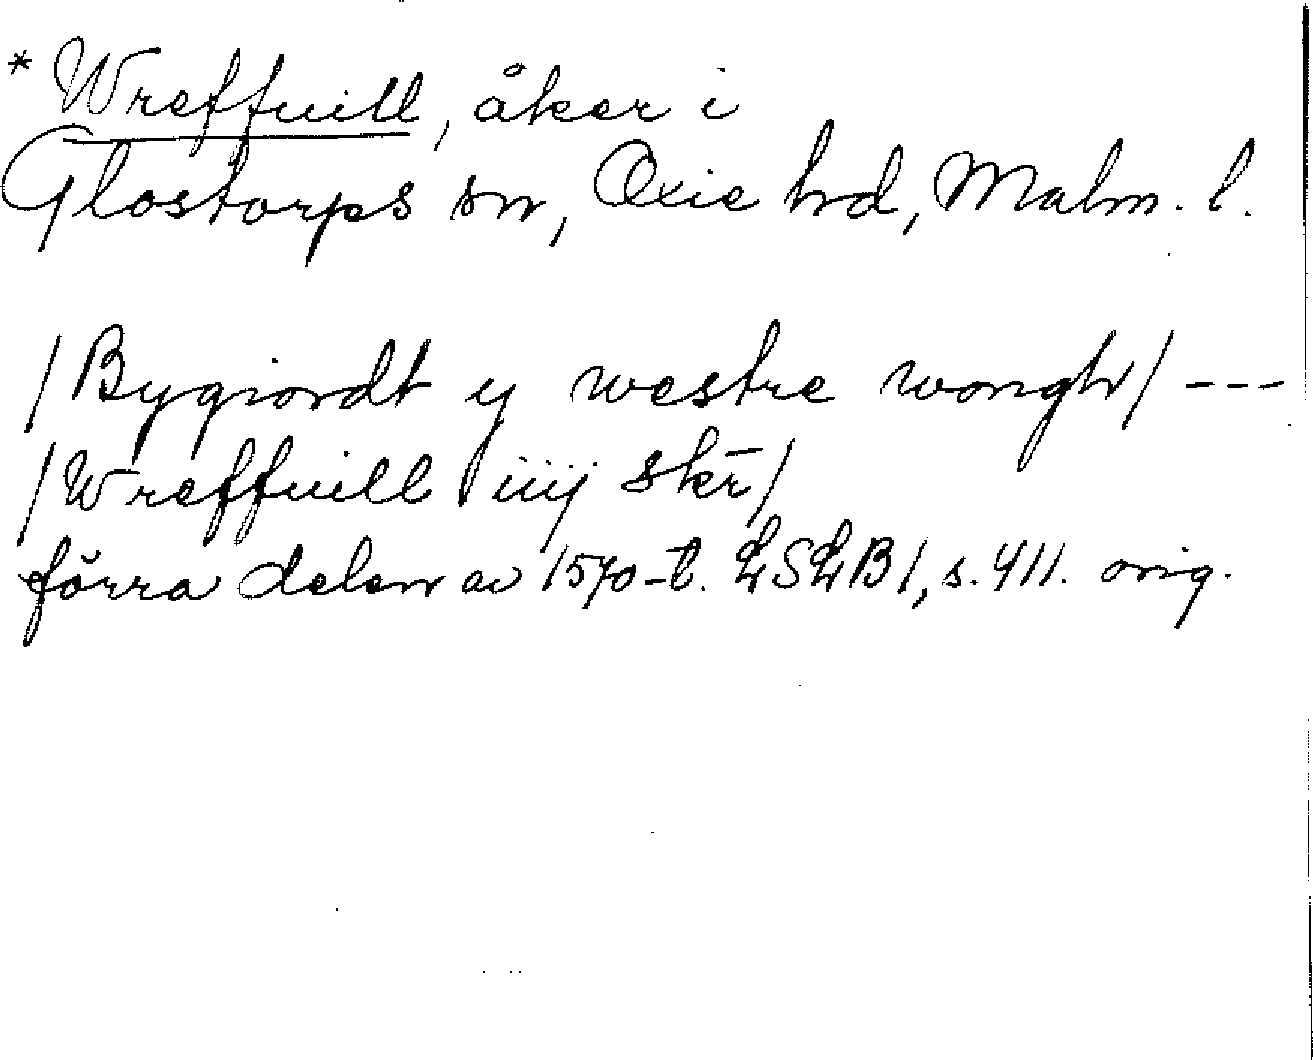 * Wreffuill, åker i
Glostorps sn, Oxie hd, Malm. l.
/Bygiordt y westre wongh/ ---
/Wreffuill iiij skr̄/
förra delen av 1570-t. LSLB 1, s. 411. orig.